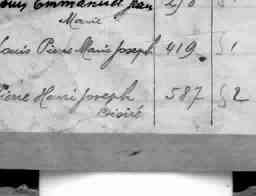 Emmanuel Jean
Marie
Louis Pierre Marie Joseph 419. § 1
Pierre Henri Joseph 587 § 2
Désiré